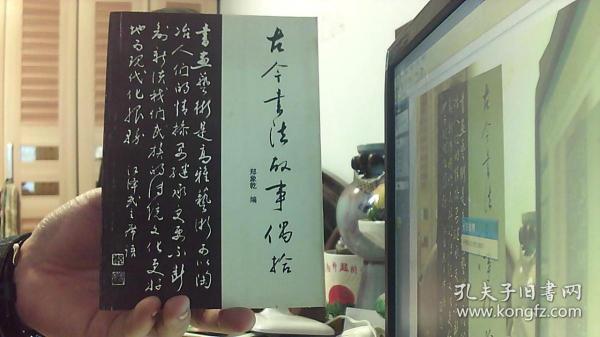 古今书法故事偶拾
郑象乾 编
书画艺術是高雅艺術可以陶
冶人们的情操要继承更要不断
创新使我们民族的传统文化更好
地为现代化服务
江泽民主席语
孔夫子旧书网
www.kongfz.com